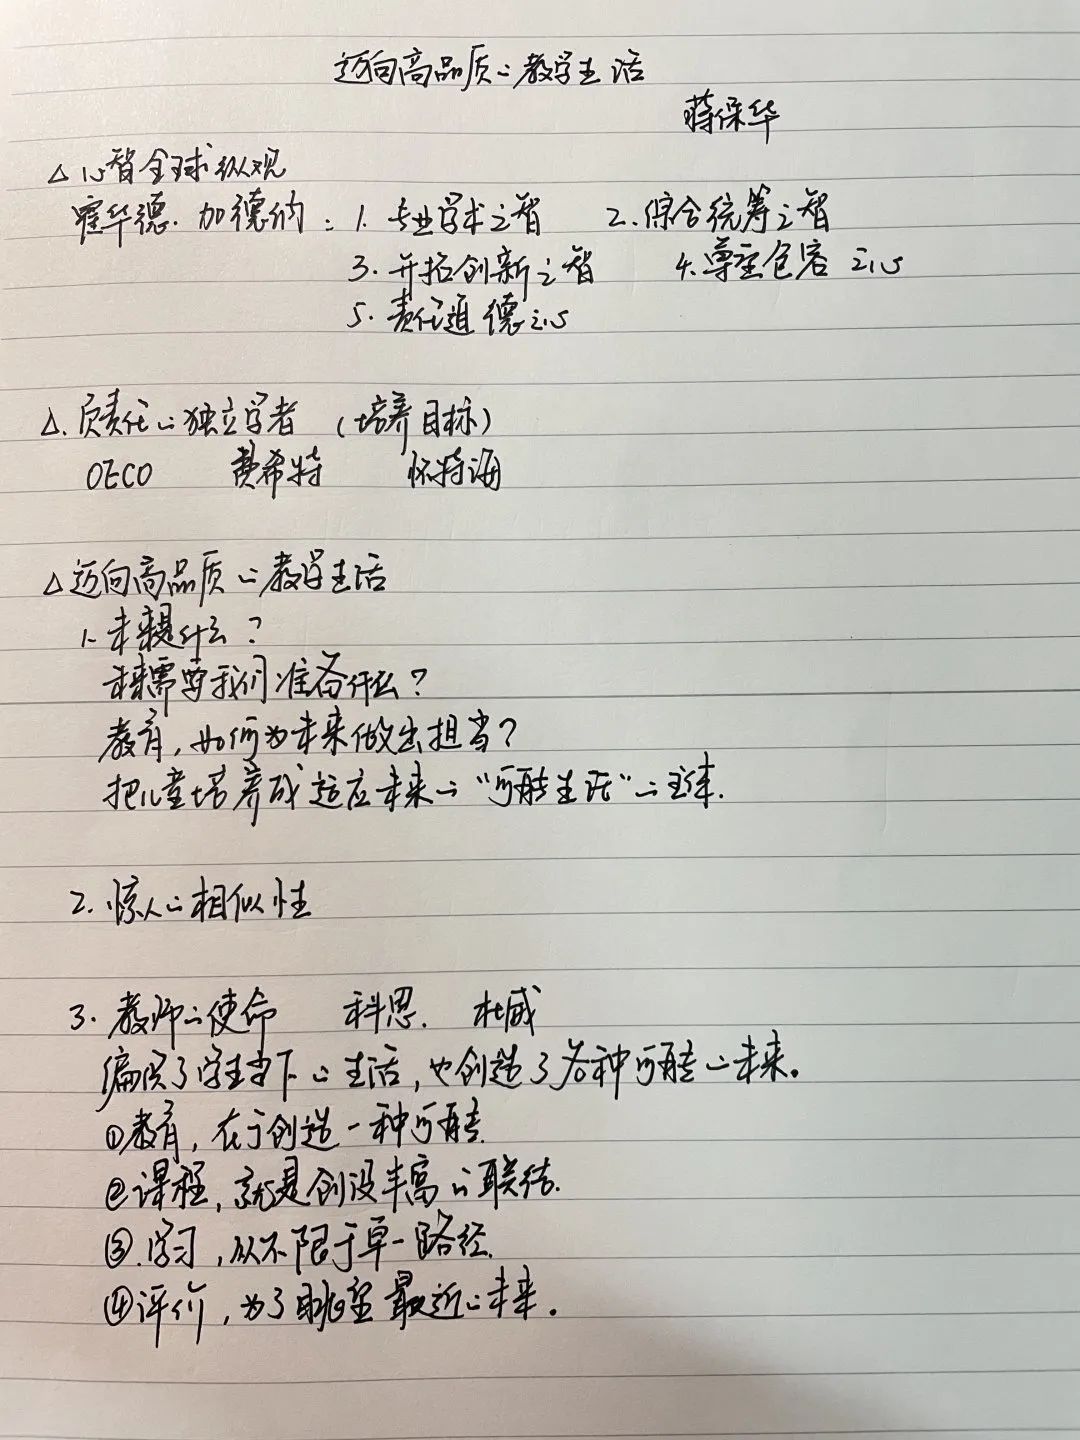 迈向高品质的教学生活
蒋保华
△ 心智全球纵观
霍华德.加德纳：1. 专业学术之智 2. 综合统筹之智
3. 开拓创新之智 4. 尊重包容之心
5. 责任道德之心
△. 负责任的独立学者 (培养目标)
OECO 费希特 怀特海
△ 迈向高品质的教学生活
1. 未来是什么？
未来需要我们准备什么？
教育，如何为未来做出担当？
把儿童培养成适应未来的“可能生活”的主体.
2. 惊人的相似性
3. 教师的使命 科恩. 杜威
编织了学生当下的生活，也创造了各种可能的未来。
①教育，在于创造一种可能.
②课程，就是创设丰富的联结.
③.学习，从不限于单一路径.
④评价，为了眺望最近的未来。